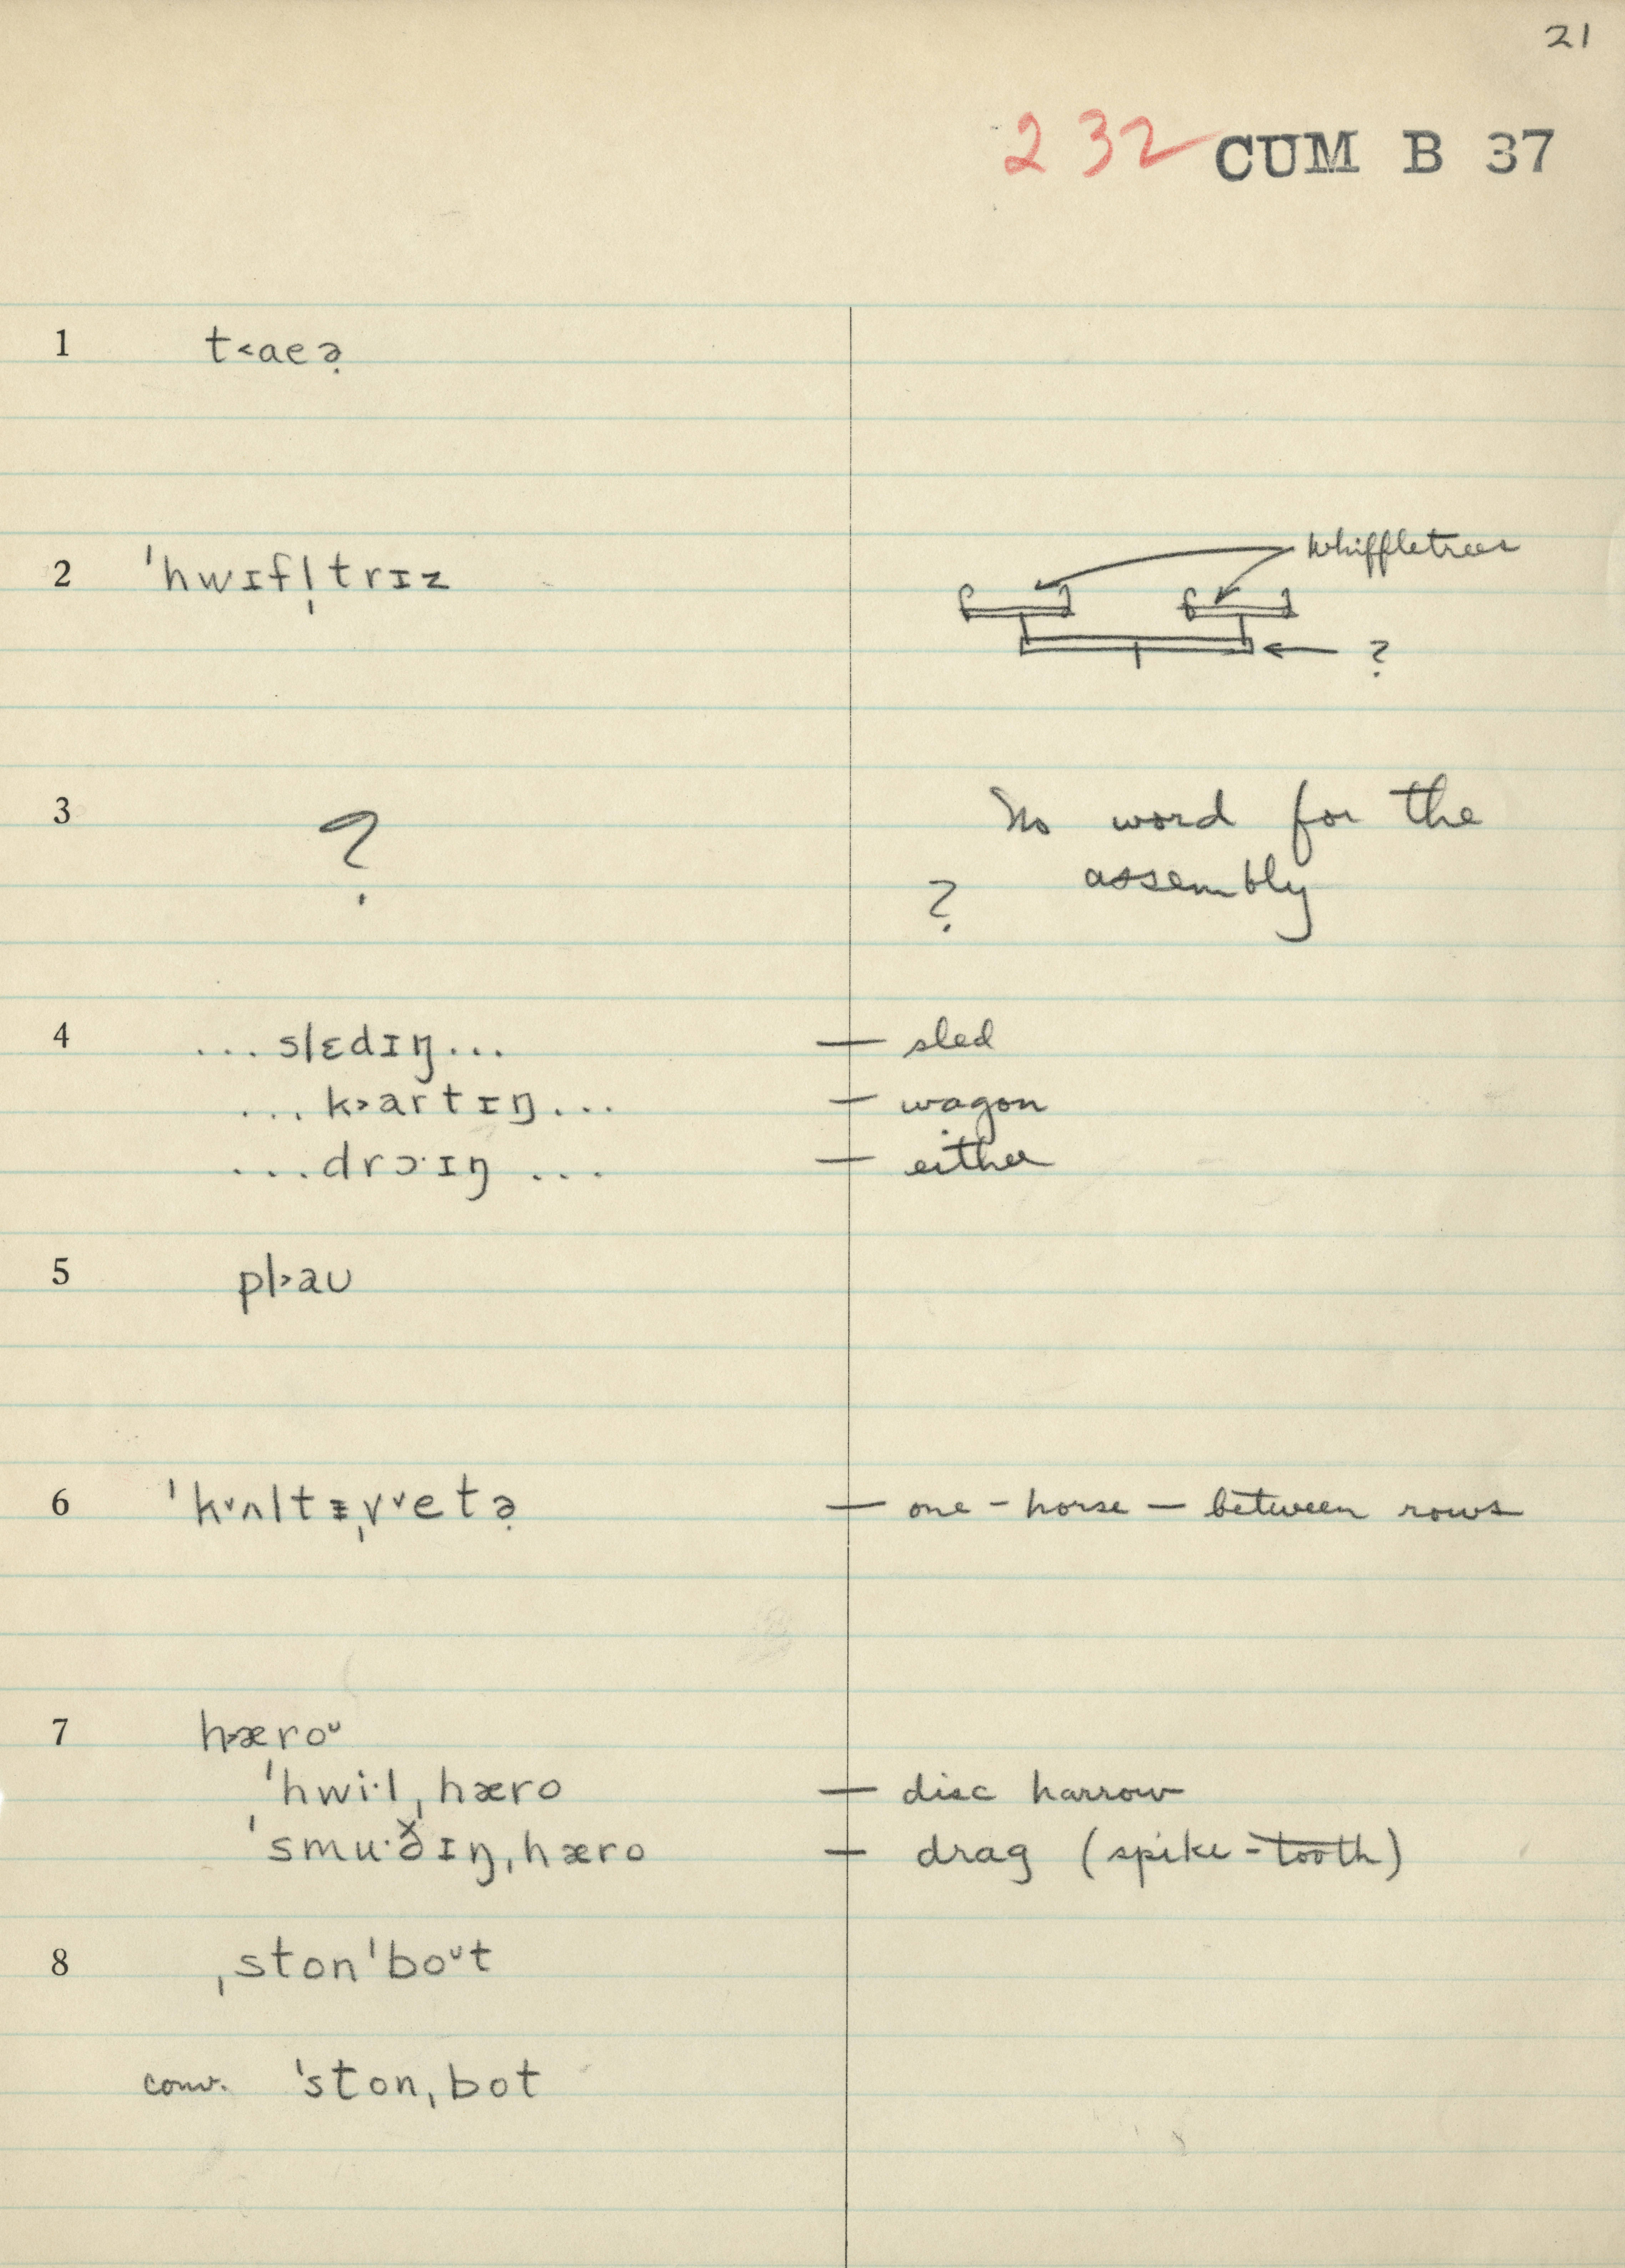 21
232 CUM B 37
1 t˂aeə̣
2 ˈhwɪfl̩trɪz
whiffletrees
?
3 ?
No word for the
? assembly
4 ...slɛdɪŋ... — sled
...k˃artɪŋ... — wagon
...drɔ·ɪŋ... — either
5 pl˃aʊ
6 ˈk˅ʌltᵻˌv˅etə̣ — one-horse — between rows
7 h˃æroᶷ
ˈhwi·lˌhæro — disc harrow
ˈsmu·ð̌ɪŋˌhæro — drag (spike-tooth)
8 ˌstonˈboᶷt
conv. ˈstonˌbot